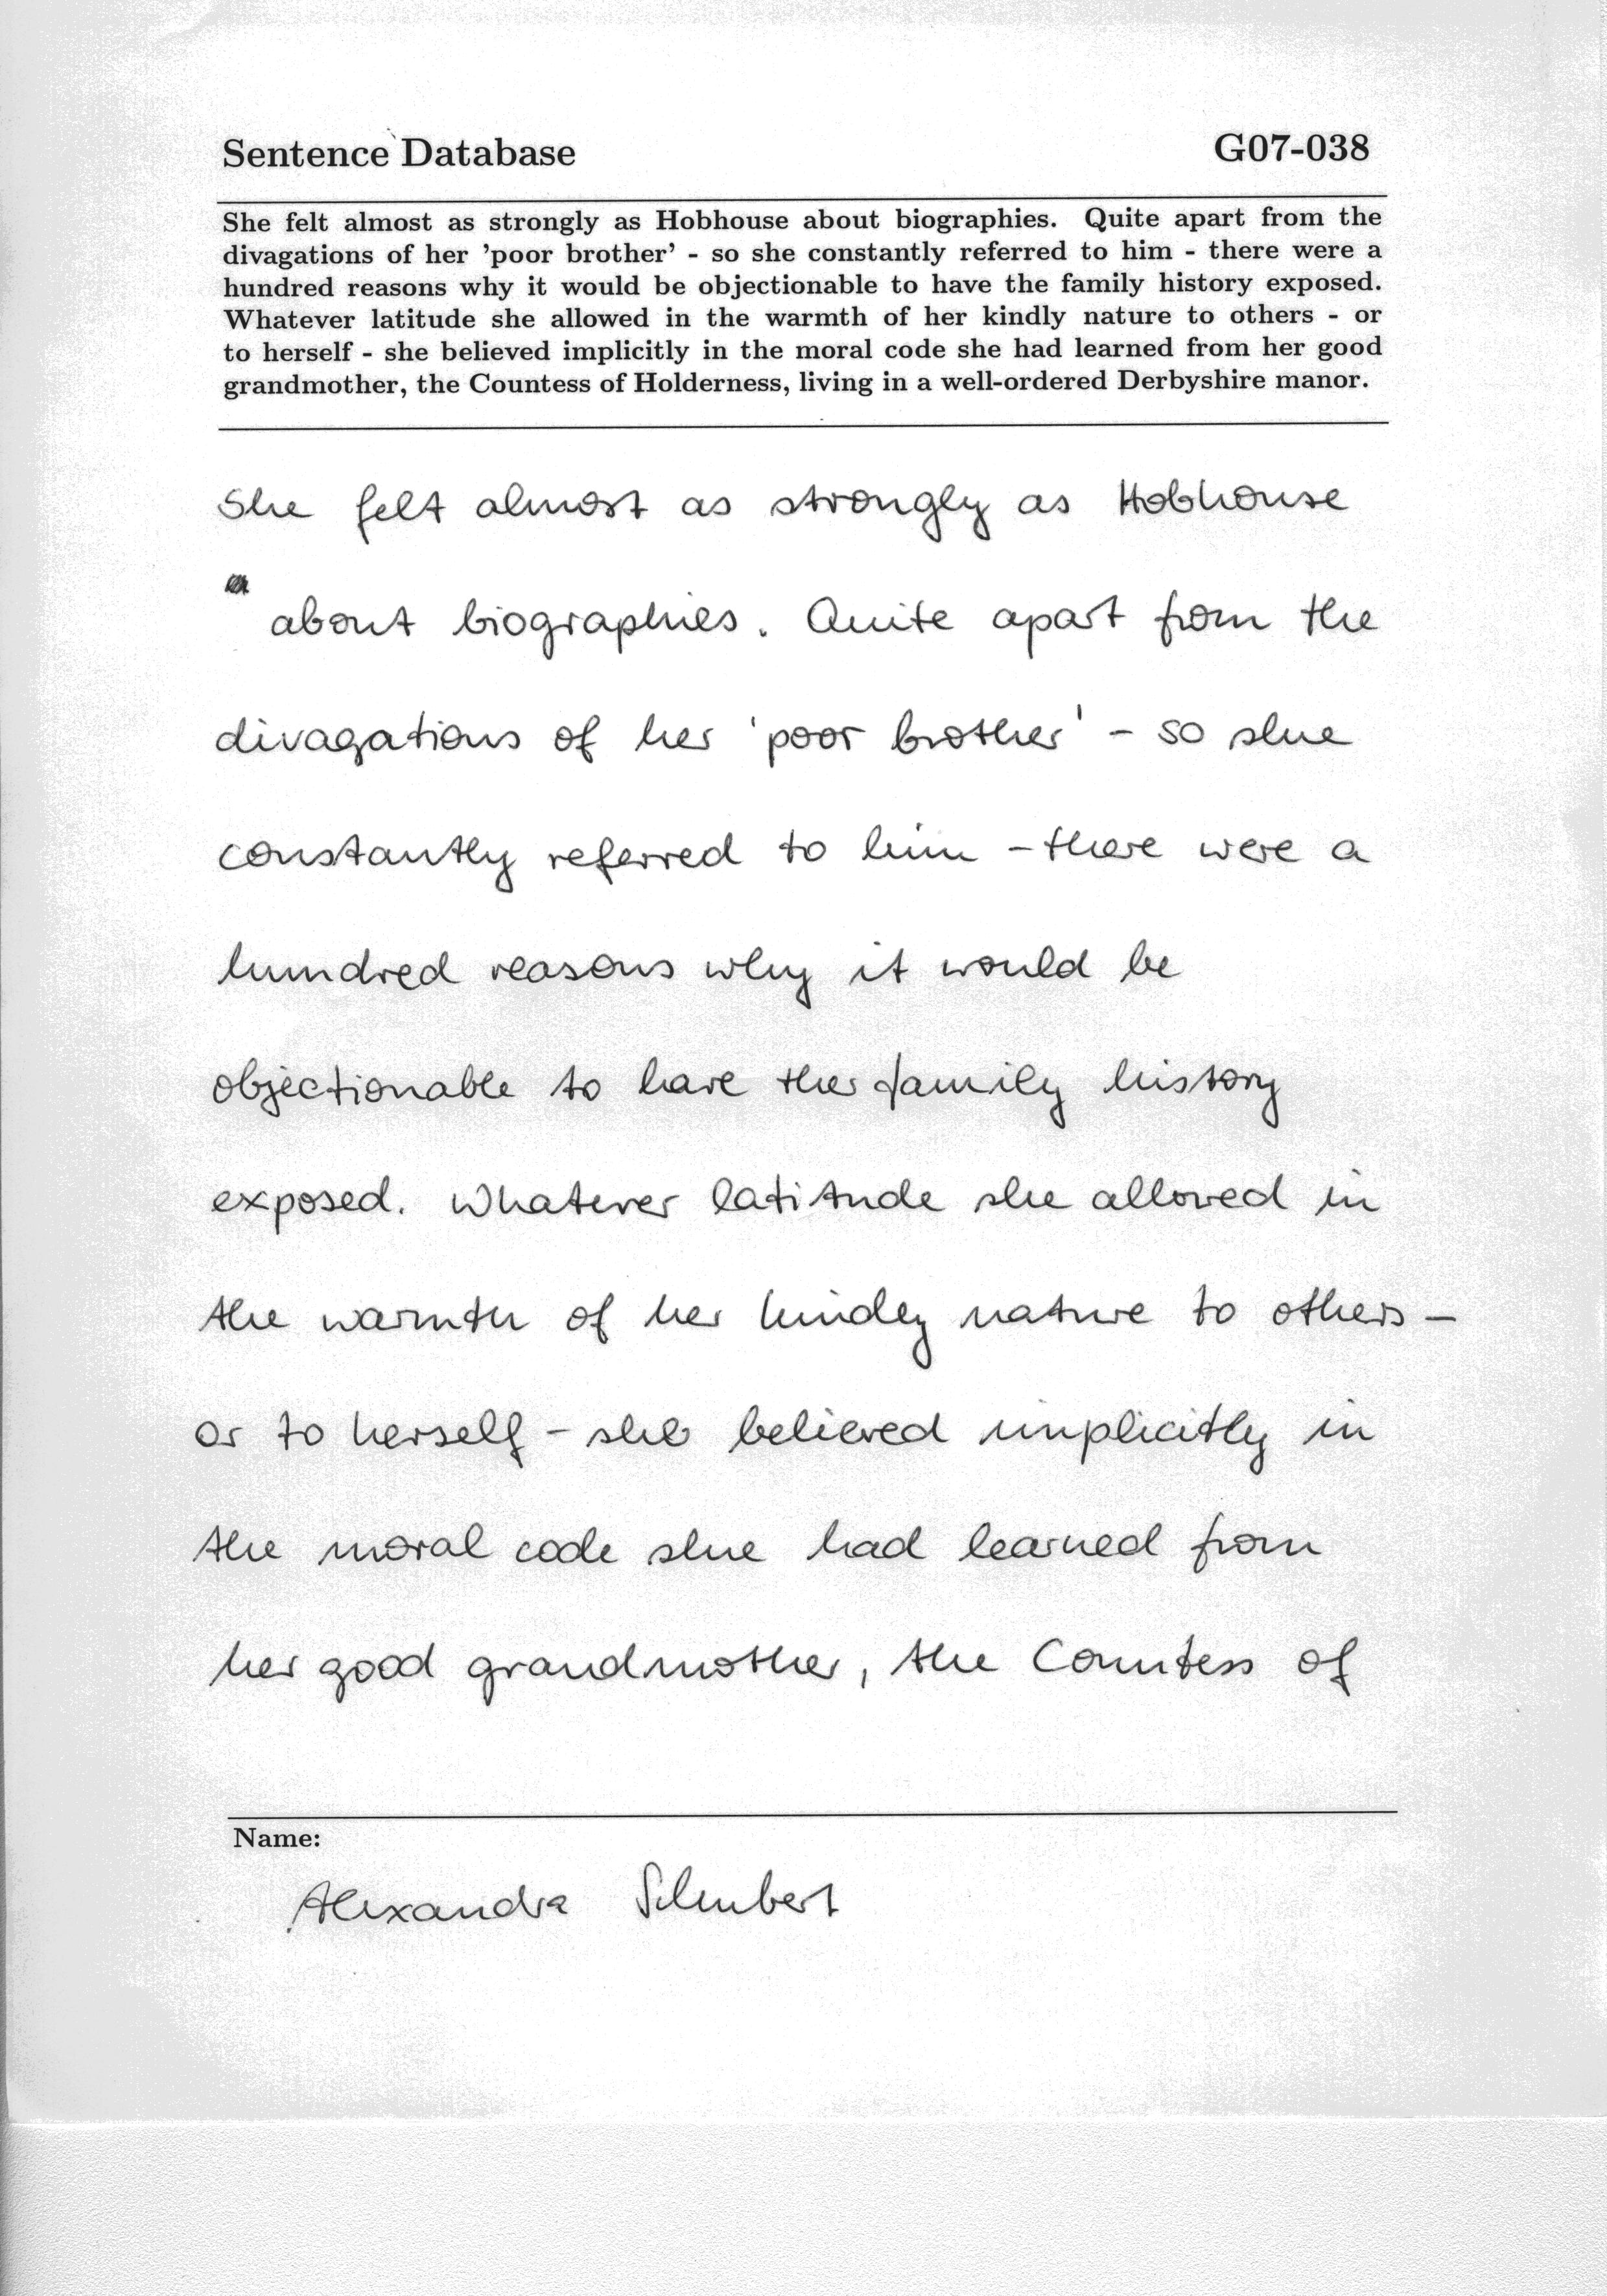 Sentence Database
G07-038
She felt almost as strongly as Hobhouse about biographies. Quite apart from the
divagations of her 'poor brother' - so she constantly referred to him - there were a
hundred reasons why it would be objectionable to have the family history exposed.
Whatever latitude she allowed in the warmth of her kindly nature to others - or
to herself - she believed implicitly in the moral code she had learned from her good
grandmother, the Countess of Holderness, living in a well-ordered Derbyshire manor.
She felt almost as strongly as Hobhouse
about biographies. Quite apart from the
divagations of her 'poor brother' - so she
constantly referred to him - there were a
hundred reasons why it would be
objectionable to have the family history
exposed. Whatever latitude she allowed in
the warmth of her kindly nature to others -
or to herself - she believed implicitly in
the moral code she had learned from
her good grandmother, the Countess of
Name:
Alexandra Schubert